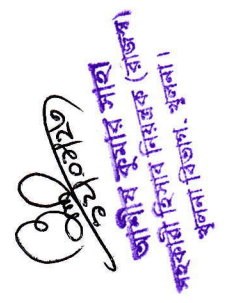 ১২/০৪/২৩
আশীষ কুমার সাহা
সহকারী হিসাব নিয়ন্ত্রক (রাজস্ব)
খুলনা বিভাগ, খুলনা।